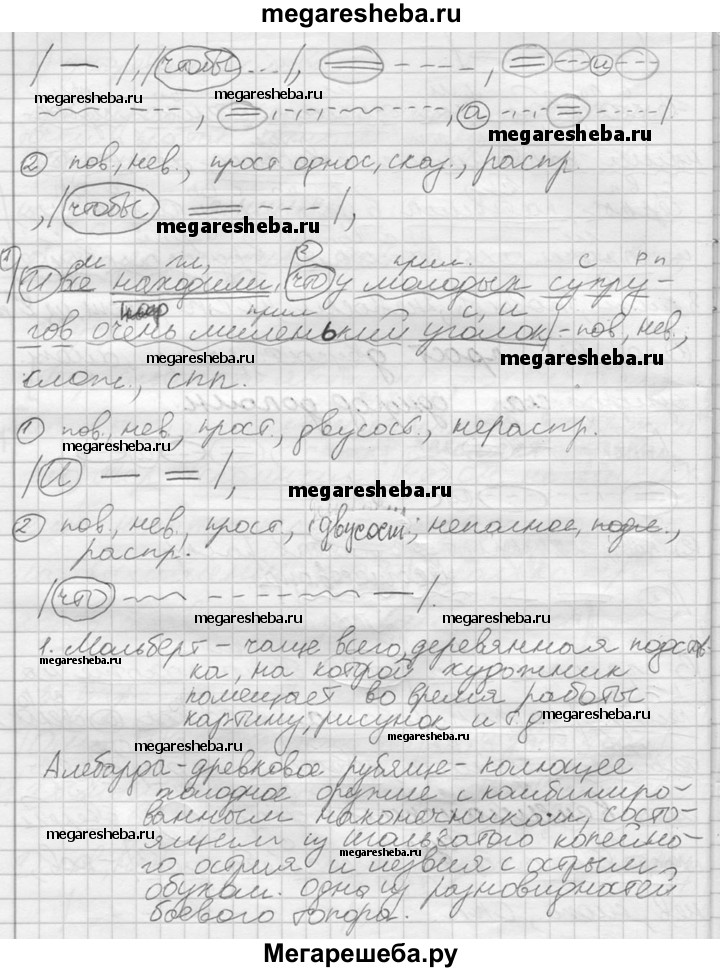 megaresheba.ru
| — |, | чтобы ... |, = - - - -, = - - - и - - -
megaresheba.ru
megaresheba.ru
, = , а = |.
megaresheba.ru
② пов., нев., прост. однос., сказ., распр.
, | чтобы = - - - |,
megaresheba.ru
м гл, ② прил. с рп
① | И все находили, | что у молодых супру-
нар прил с, и
гов очень миленький уголок | - пов., нев.,
megaresheba.ru
megaresheba.ru
слож., спп.
① пов., нев., прост., двусост., нераспр.
megaresheba.ru
| И — = |,
megaresheba.ru
② пов., нев., прост., (двусост.; неполное, подл.,
распр.
| что — |.
megaresheba.ru
megaresheba.ru
1. Мольберт - чаще всего деревянная подстав-
megaresheba.ru
ка, на котрой художник
помещает во время работы
картину, рисунок и т д.
megaresheba.ru
megaresheba.ru
Алебарда - древковое рубяще - колющее
холодное оружие с комбиниро-
ванным наконечником, состо-
megaresheba.ru
ящем из игольчатого копейно-
megaresheba.ru
го острия и лезвия с острым
обухом. одна из разновидностей
боевого топора.
Мегарешеба.ру